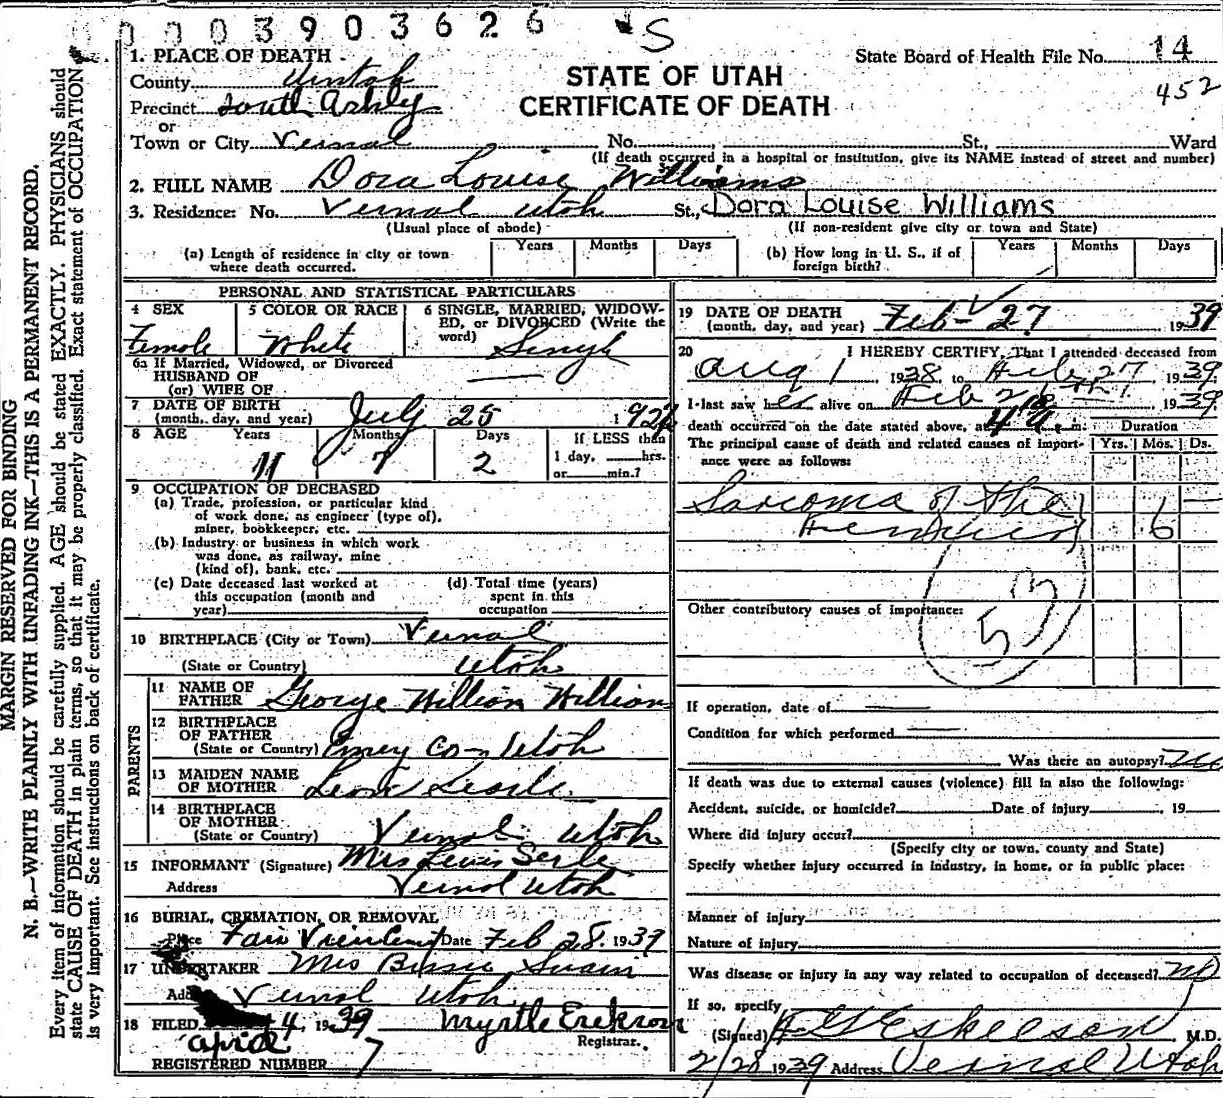 0003903626 S
1. PLACE OF DEATH
State Board of Health File No. 14
County Uintah
STATE OF UTAH
452
Precinct South Ashley
CERTIFICATE OF DEATH
or
Town or City Vernal No. St., Ward
(If death occurred in a hospital or institution, give its NAME instead of street and number)
2. FULL NAME Dora Louise Williams
3. Residence: No. Vernal Utah St., Dora Louise Williams
(Usual place of abode) (If non-resident give city or town and State)
(a) Length of residence in city or town where death occurred. Years Months Days
(b) How long in U. S., if of foreign birth? Years Months Days
PERSONAL AND STATISTICAL PARTICULARS
4 SEX
Female
5 COLOR OR RACE
White
6 SINGLE, MARRIED, WIDOWED, or DIVORCED (Write the word)
Single
6a If Married, Widowed, or Divorced
HUSBAND OF
(or) WIFE OF
7 DATE OF BIRTH
(month, day, and year) July 25 192
8 AGE Years Months Days
If LESS than
1 day, hrs.
or min.?
11 7 2
9 OCCUPATION OF DECEASED
(a) Trade, profession, or particular kind
of work done, as engineer (type of),
miner, bookkeeper, etc.
(b) Industry or business in which work
was done, as railway, mine
(kind of), bank, etc.
(c) Date deceased last worked at
this occupation (month and
year)
(d) Total time (years)
spent in this
occupation
10 BIRTHPLACE (City or Town) Vernal
(State or Country) Utah
PARENTS
11 NAME OF
FATHER George William William
12 BIRTHPLACE
OF FATHER
(State or Country) Emery Co Utah
13 MAIDEN NAME
OF MOTHER
14 BIRTHPLACE
OF MOTHER
(State or Country) Vernal Utah
15 INFORMANT (Signature) Mrs Lewis Serle
Address Vernal Utah
16 BURIAL, CREMATION, OR REMOVAL
Place Fair View Cem Date Feb 28, 1939
17 UNDERTAKER Mrs Swain
Add Vernal Utah
18 FILED 4, 1939 Myrtle Erekson
april Registrar.
REGISTERED NUMBER 7
19 DATE OF DEATH
(month, day, and year) Feb - 27 1939
20 I HEREBY CERTIFY, That I attended deceased from
Aug 1 1938 to Feb 27 1939
I last saw her alive on Feb 1939
death occurred on the date stated above, at 4 a. m. Duration
The principal cause of death and related causes of importance were as follows: Yrs. Mos. Ds.
Sarcoma of the
6 —
53
Other contributory causes of importance:
If operation, date of
Condition for which performed
Was there an autopsy? no
If death was due to external causes (violence) fill in also the following:
Accident, suicide, or homicide? Date of injury , 19
Where did injury occur?
(Specify city or town, county and State)
Specify whether injury occurred in industry, in home, or in public place:
Manner of injury
Nature of injury
Was disease or injury in any way related to occupation of deceased? no
If so, specify
(Signed) Eskelson M.D.
2/28 1939 Address Vernal Utah
MARGIN RESERVED FOR BINDING
N. B.—WRITE PLAINLY WITH UNFADING INK—THIS IS A PERMANENT RECORD.
Every item of information should be carefully supplied. AGE should be stated EXACTLY. PHYSICIANS should
state CAUSE OF DEATH in plain terms, so that it may be properly classified. Exact statement of OCCUPATION
is very important. See instructions on back of certificate.